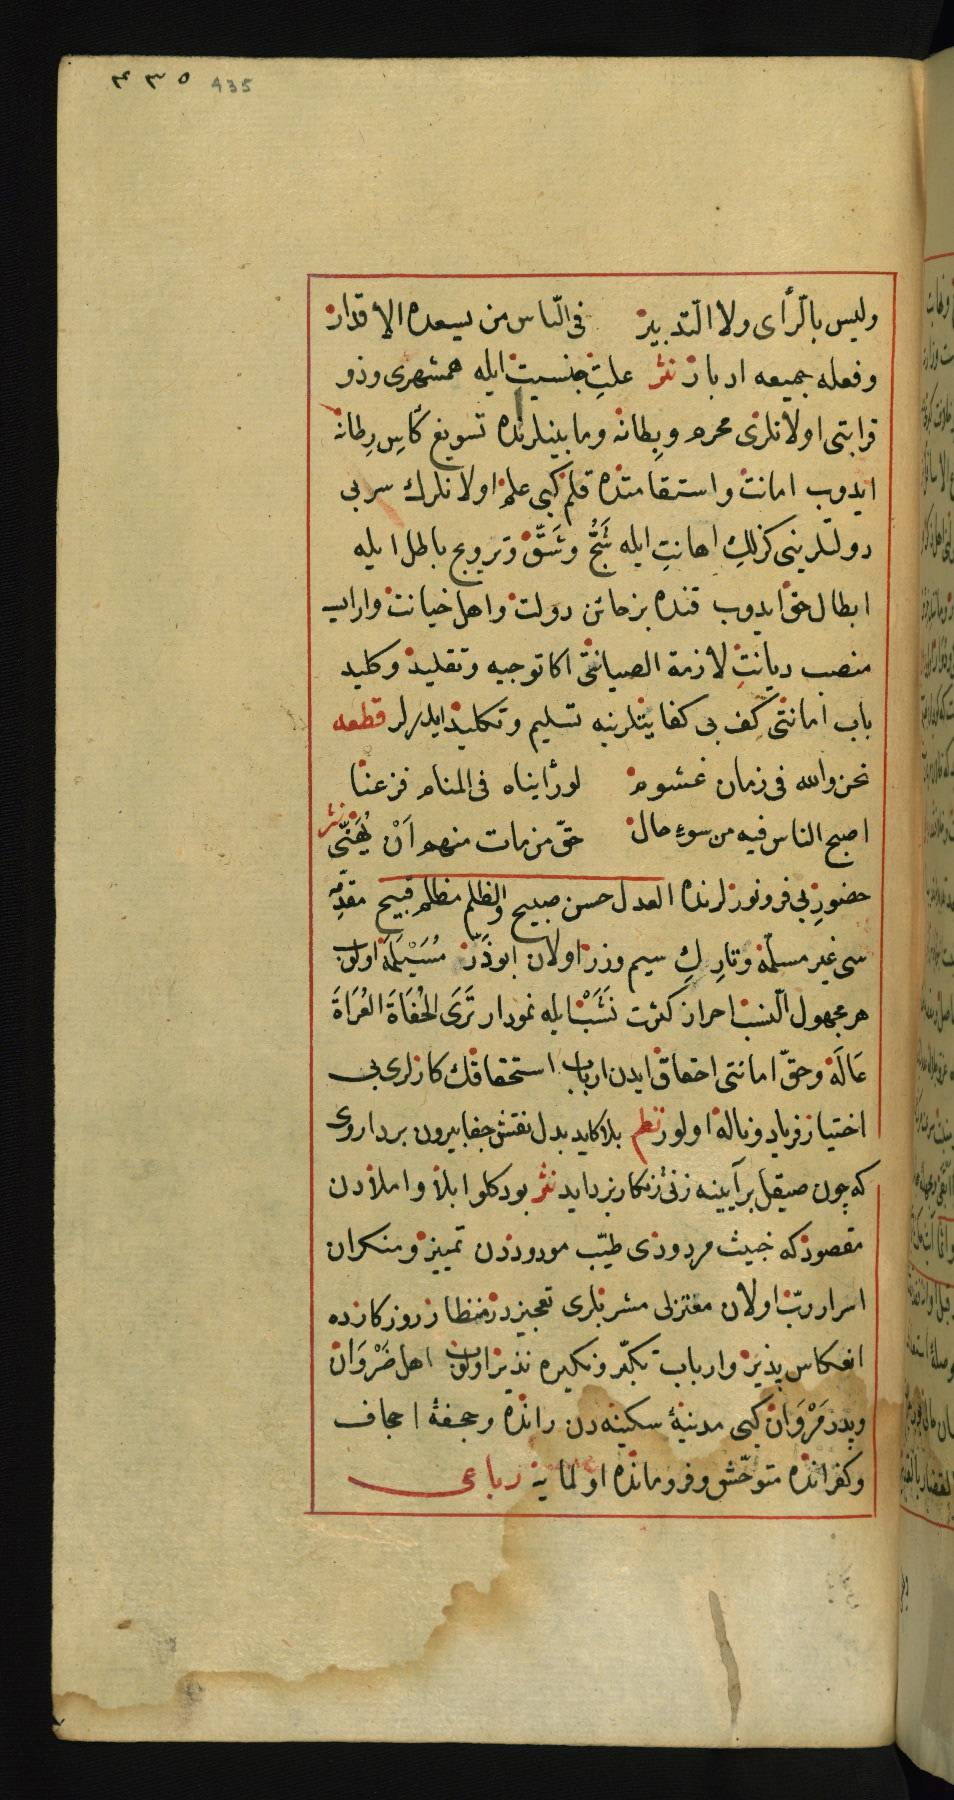 ٤٣٥ 435
فى النّاس من يسعده الاقدار وليس بالرّأى ولا التّدبير
وفعله جميعه ادبار نثر علتِ جنسيت ايله همشهرى وذو
قرابتى اولانلرى محرم وبِطانه وما بينلرنده تسويغ كٲسِ رِطانه
ايدوب امانت واستقامتده قلم كبى علم اولانلرك سر بى
دولتلرينى كزلك اهانتِ ايله شَجُّ وشَقّ وترويج باطل ايله
ابطال حق ايدوب قنده بر خائن دولت واهل خيانت وار ايسه
منصب ديانتِ لازمة الصيانتى اكا توجيه وتقليد وكليد
باب امانتى كف بى كفايتلرينه تسليم وتكليد ايدرلر قطعه
نحن والله فى زمان غشوم لو رأيناه فى المنام فزعنا
اصبح الناس فيه من سوءِ حال حقّ من مات منهم اَنْ يُهَنّى نثر
حضورِ بى فر ونورلرنده العدل حسن صبيح والظلم مظلم قبيح مقدّمه
سى غير مسلّمه وتاركِ سيم وزر اولان ابوذَرّ مُسَيْلَمَه اولوب
هر مجهول النسب احراز كثرت نَشَبْ ايله نمودار تَرَى الْحُفَاةَ الْعُرَاةَ
عَالَةً وحقّ امانتى احقاق ايدن ارباب استحقاقك كارلرى بى
اختيار فرياد وناله اولور نظم بلا كايد بدل نقش جفا بيرون برد اروى
كه چون صيقل بر آيينه زنى زنكار بزدايد نثر بو دكلو ابلا واملادن
مقصود كه خبيث مردودى طيّب مودوددن تمييز ومنكران
اسرار ربّ اولان معتزلى مشربلرى تعجيزدر منظار روزكارده
انعكاس پذير وارباب تكبّر ونكيره نذير اولوب اهل ضَرْوَان
وپدر مَرْوَان كبى مدينۀ سكينه دن رانده وعجفۀ اعجاف
وكفرانده متوحّش وفرومانده اولمايه رباعى